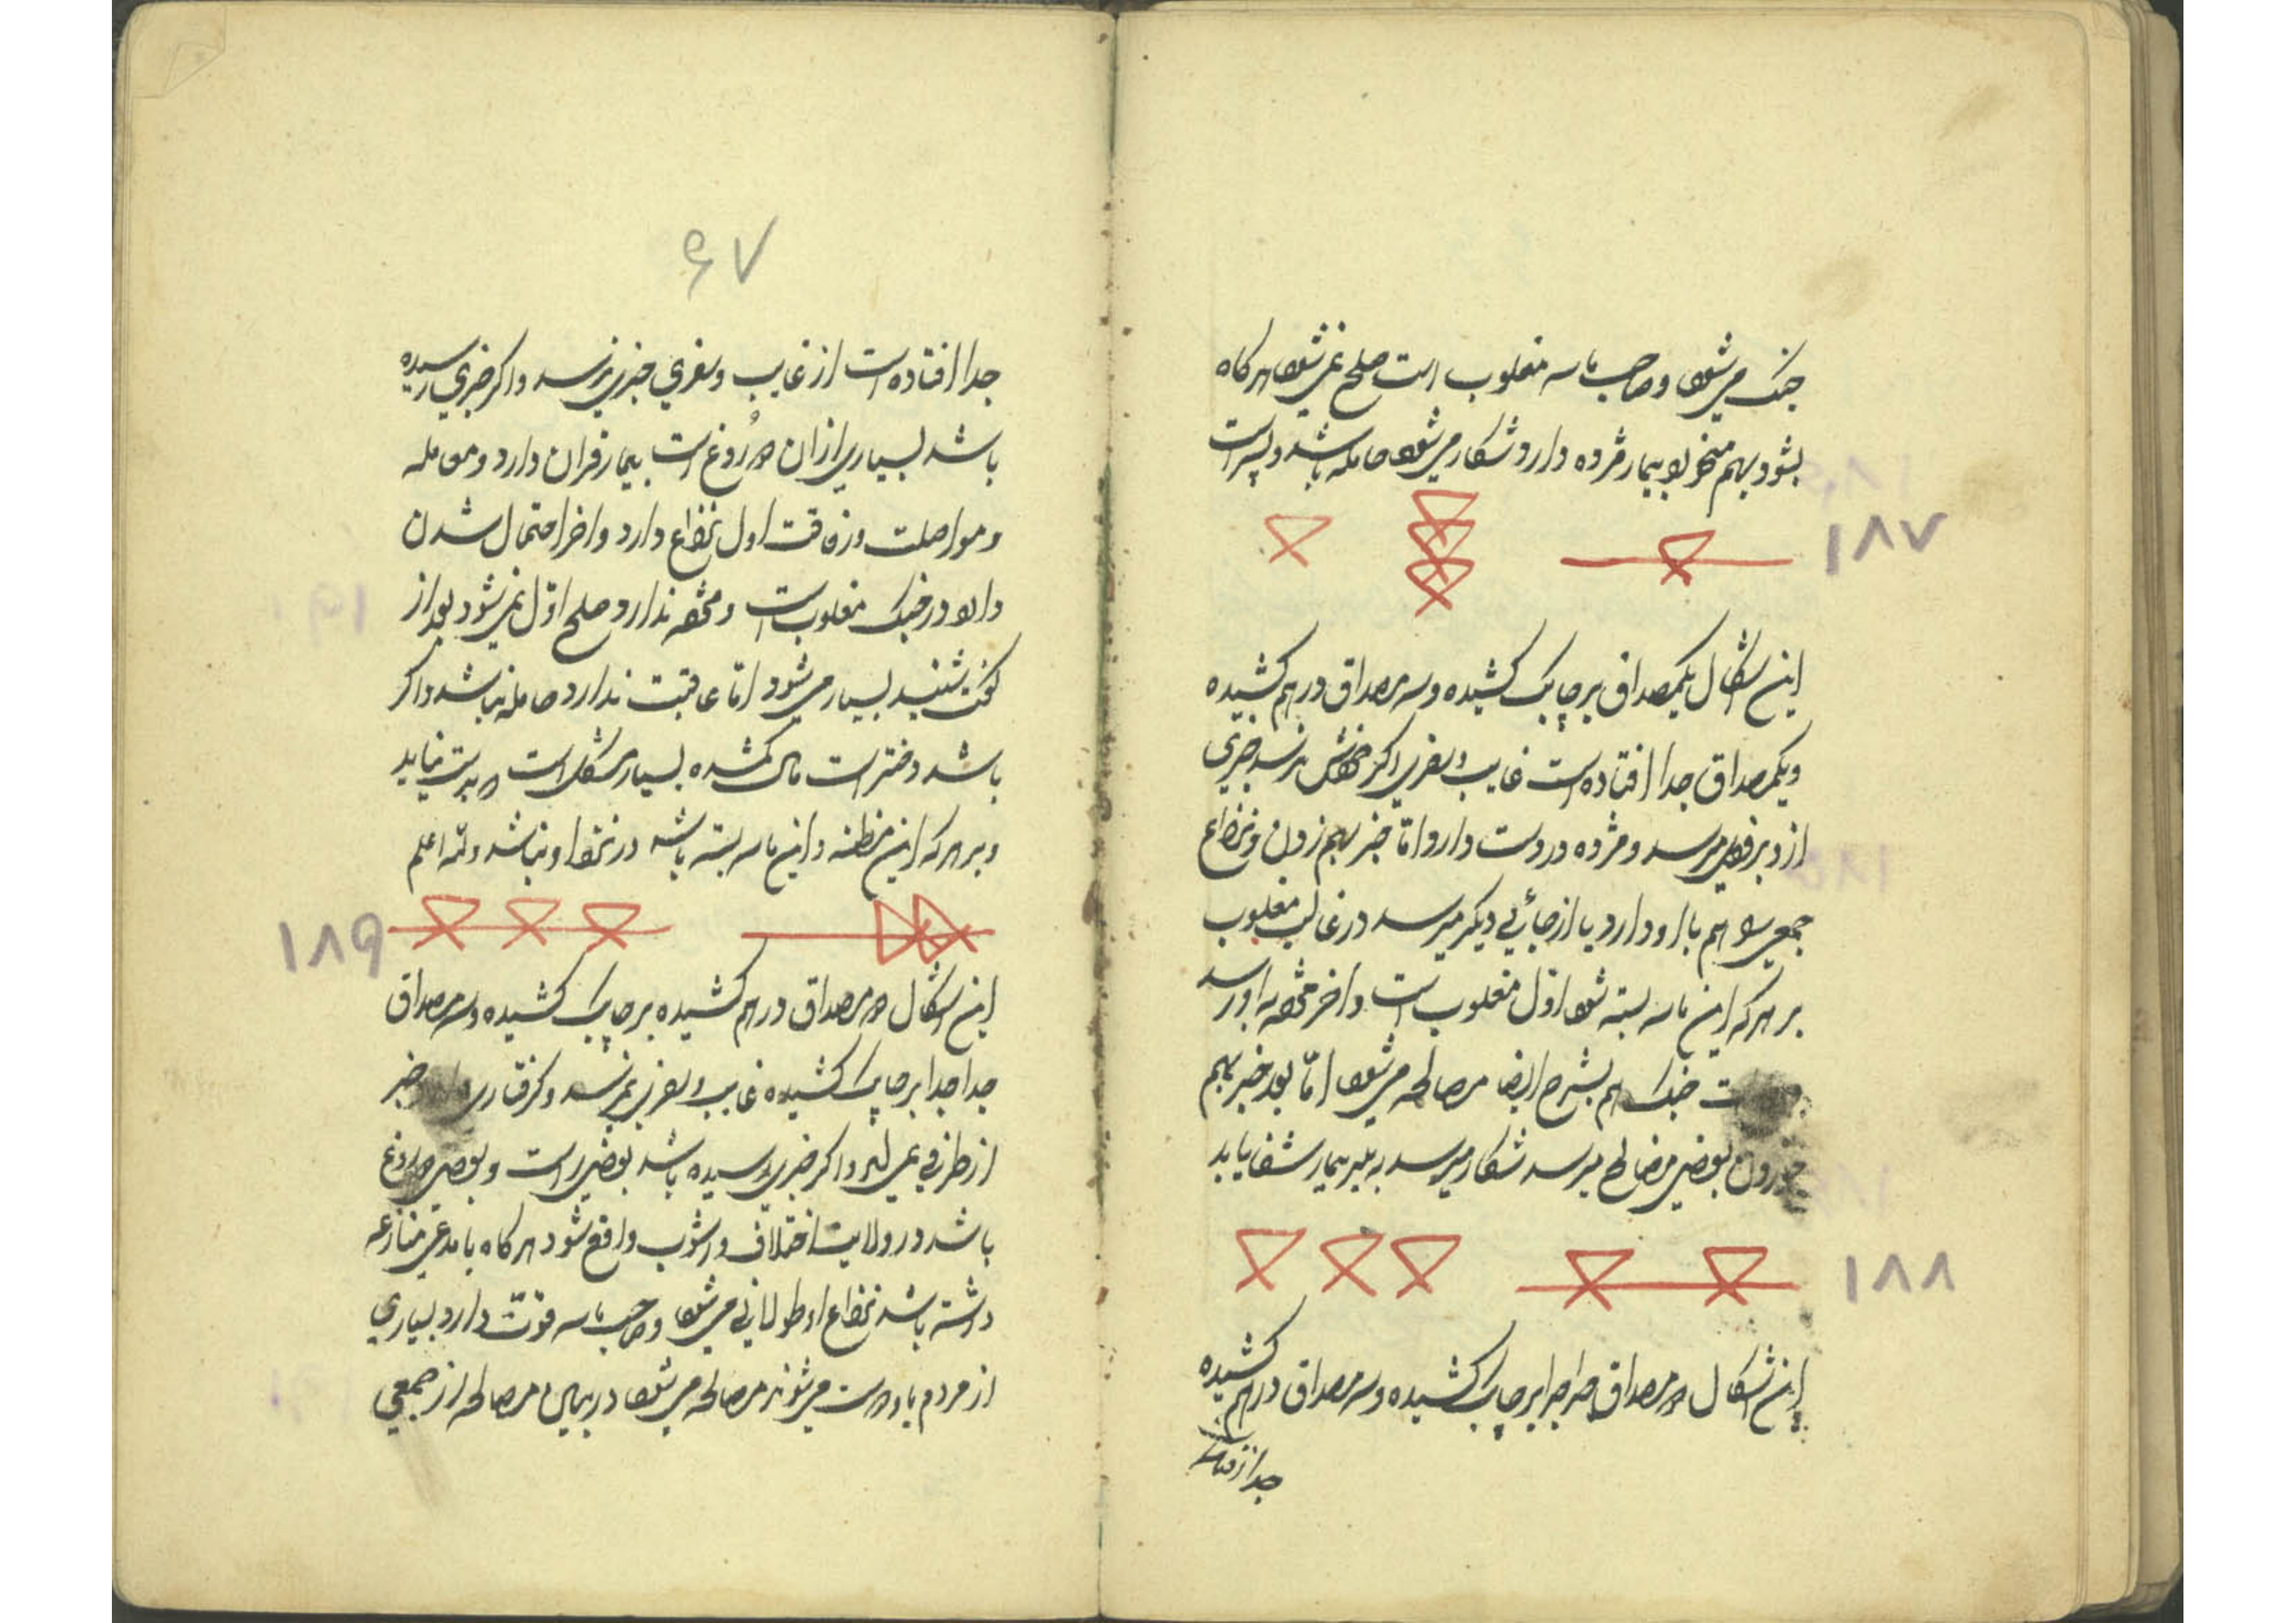 جنک میشود و صاحب ماسه مغلوب است صلح نمیشود هرکاه
بشود بهم میخورد بیمار مژده دارد شکار میشود حامله باشد و پسر است
۱۸۷
این اشکال یکمصداق بر چاپک کشیده و سه مصداق در هم کشیده
ویکمصداق جدا افتاده است غایب وسفری اکر خودش نرسد خبری
از او بزودی میرسد و مژده در دست دارد اما خبر بهم زدن و نزاع
جمعی هم با او دارد یا از جائی دیکر میرسد در غالب مغلوب
بر هر که این ماسه بسته شود اول مغلوب است و آخر باو رسد
جنک هم بشرح ایضا مصالحه میشود اما بعد خبر بهم
خوردن بعضی مصالح میرسد شکار میرسد بیمار شفا یابد
۱۸۸
این اشکال دو مصداق جدا جدا بر چاپک کشیده و سه مصداق در هم کشیده
جدا افتاده
۶۷
جدا افتاده است از غایب وسفری خبری نرسد و اکر خبری رسیده
باشد بسیاری از آن دروغ است بیمار قران دارد و معامله
و مواصلت و رفاقت اول نزاع دارد و آخر احتمال شدن
دارد در جنک مغلوب است و ندارد صلح اول نمیشود بعد از
کفت شنید بسیار میشود اما عاقبت ندارد حامله نباشد و اکر
باشد دختر است مال کمشده بسیار مشکل است بدست نیاید
و بر هر که این مظنه و این ماسه بسته باشد در نزد او نباشد والله اعلم
۱۸۹
این اشکال دو مصداق در هم کشیده بر چاپک کشیده و سه مصداق
جدا جدا بر چاپک کشیده غایب وسفری نمیرسد و کرفتاری دارد و خبر
از طرفی اکر خبری رسیده باشد بعضی راست و بعضی دروغ
باشد در ولایت اختلاف و آشوب واقع شود هرکاه با مدعی منازعه
داشته باشد نزاع او طولانی میشود و صاحب ماسه قوت دارد بسیاری
از مردم با او دوست میشوند مصالحه میشود در میان مصالحه از جمعی